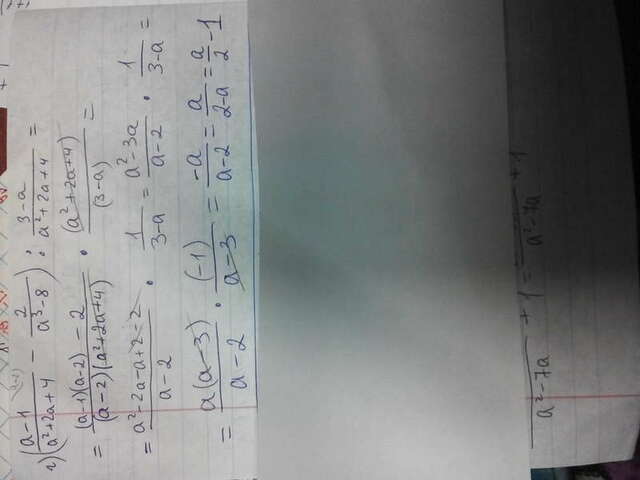 г) ((a-1)/(a²+2a+4) - 2/(a³-8)) : (3-a)/(a²+2a+4) =
= ((a-1)(a-2) - 2)/((a-2)(a²+2a+4)) · (a²+2a+4)/(3-a) =
= (a²-2a-a+2-2)/(a-2) · 1/(3-a) = (a²-3a)/(a-2) · 1/(3-a) =
= a(a-3)/(a-2) · (-1)/(a-3) = -a/(a-2) = a/(2-a) = a/2 - 1
/(a²-7a) + 1 = /(a²-7a) + 1